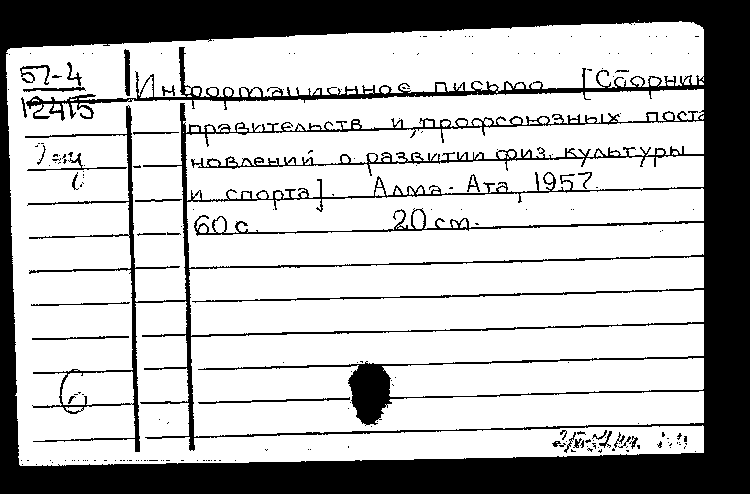 57-4
12415
Информационное письмо [Сборник
правительств и, профсоюзных поста
новлений о развитии физ. культуры
и спорта]. Алма-Ата, 1957.
60 с. 20 см.
6